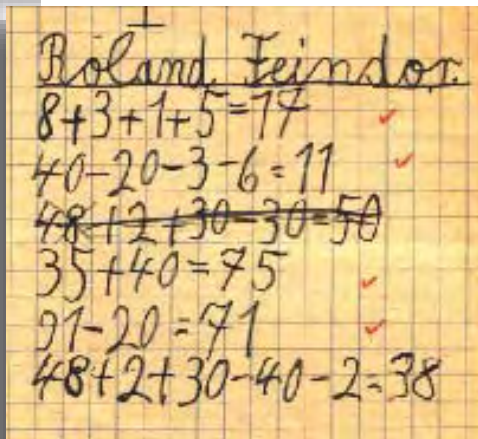 Roland Feindor.
8+3+1+5=17
40-20-3-6=11
48+2+30-30=50
35+40=75
91-20=71
48+2+30-40-2=38